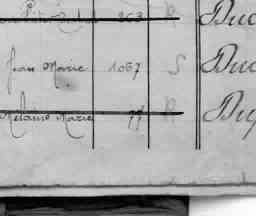 263 R Duc
Jean Marie 1067 S Duc
Mélanie Marie 77 R Dup